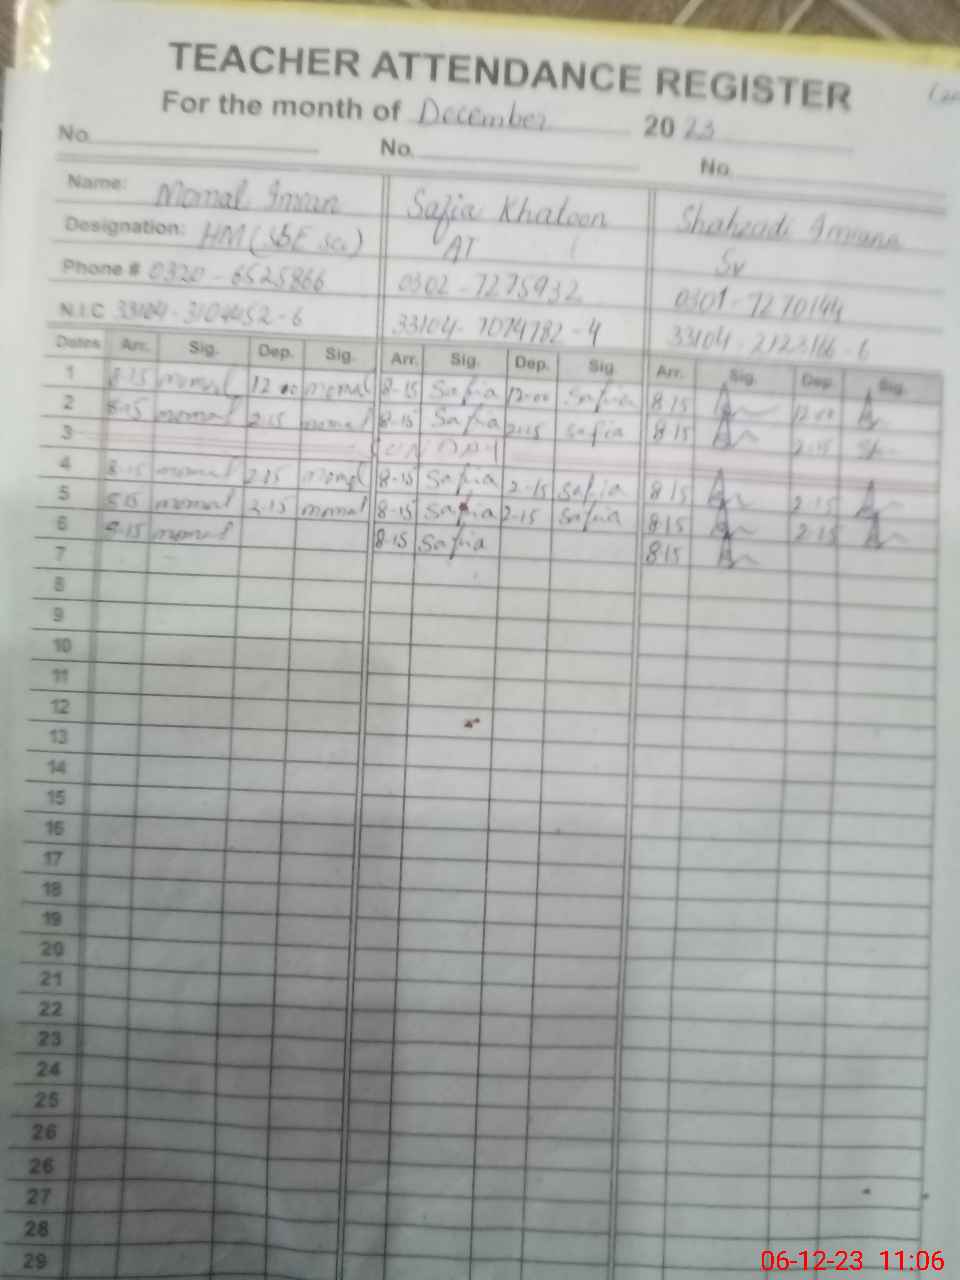 TEACHER ATTENDANCE REGISTER
For the month of December 2023
No. No. No.
Name: Momal Iman Safia Khatoon Shahzadi Imrana
Designation: HM (SSE sci) AT Sv
Phone # 0320-6525866 0302-7275932 0301-7270144
N.I.C 33104-3104452-6 33104-7074782-4 33104-2123166-6
Dates Arr. Sig. Dep. Sig. Arr. Sig. Dep. Sig. Arr. Sig. Dep. Sig.
1 8-15 momal 12 00 momal 8-15 Safia 12-00 Safia 8 15 12-00
2 8-15 momal 2.15 momal 8-15 Safia 2.15 safia 8 15 2.15
3 SUNDAY
4 8-15 momal 2.15 momal 8-15 Safia 2-15 Safia 8 15 2.15
5 8-15 momal 2.15 momal 8-15 Safia 2-15 Safia 8.15 2.15
6 8-15 momal 8-15 Safia 8 15
7
8
9
10
11
12
13
14
15
16
17
18
19
20
21
22
23
24
25
26
26
27
28
29
06-12-23 11:06